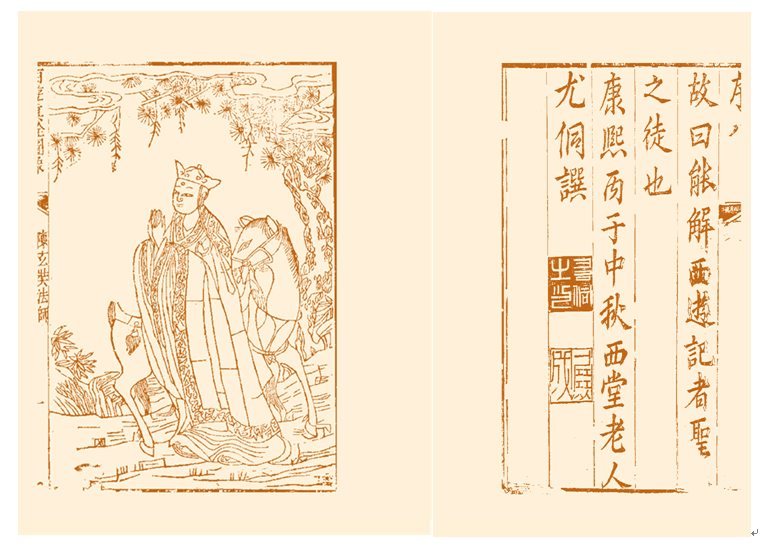 序
故曰能解西遊記者聖
之徒也
康熙丙子中秋西堂老人
尤侗譔
陳玄奘法師
一